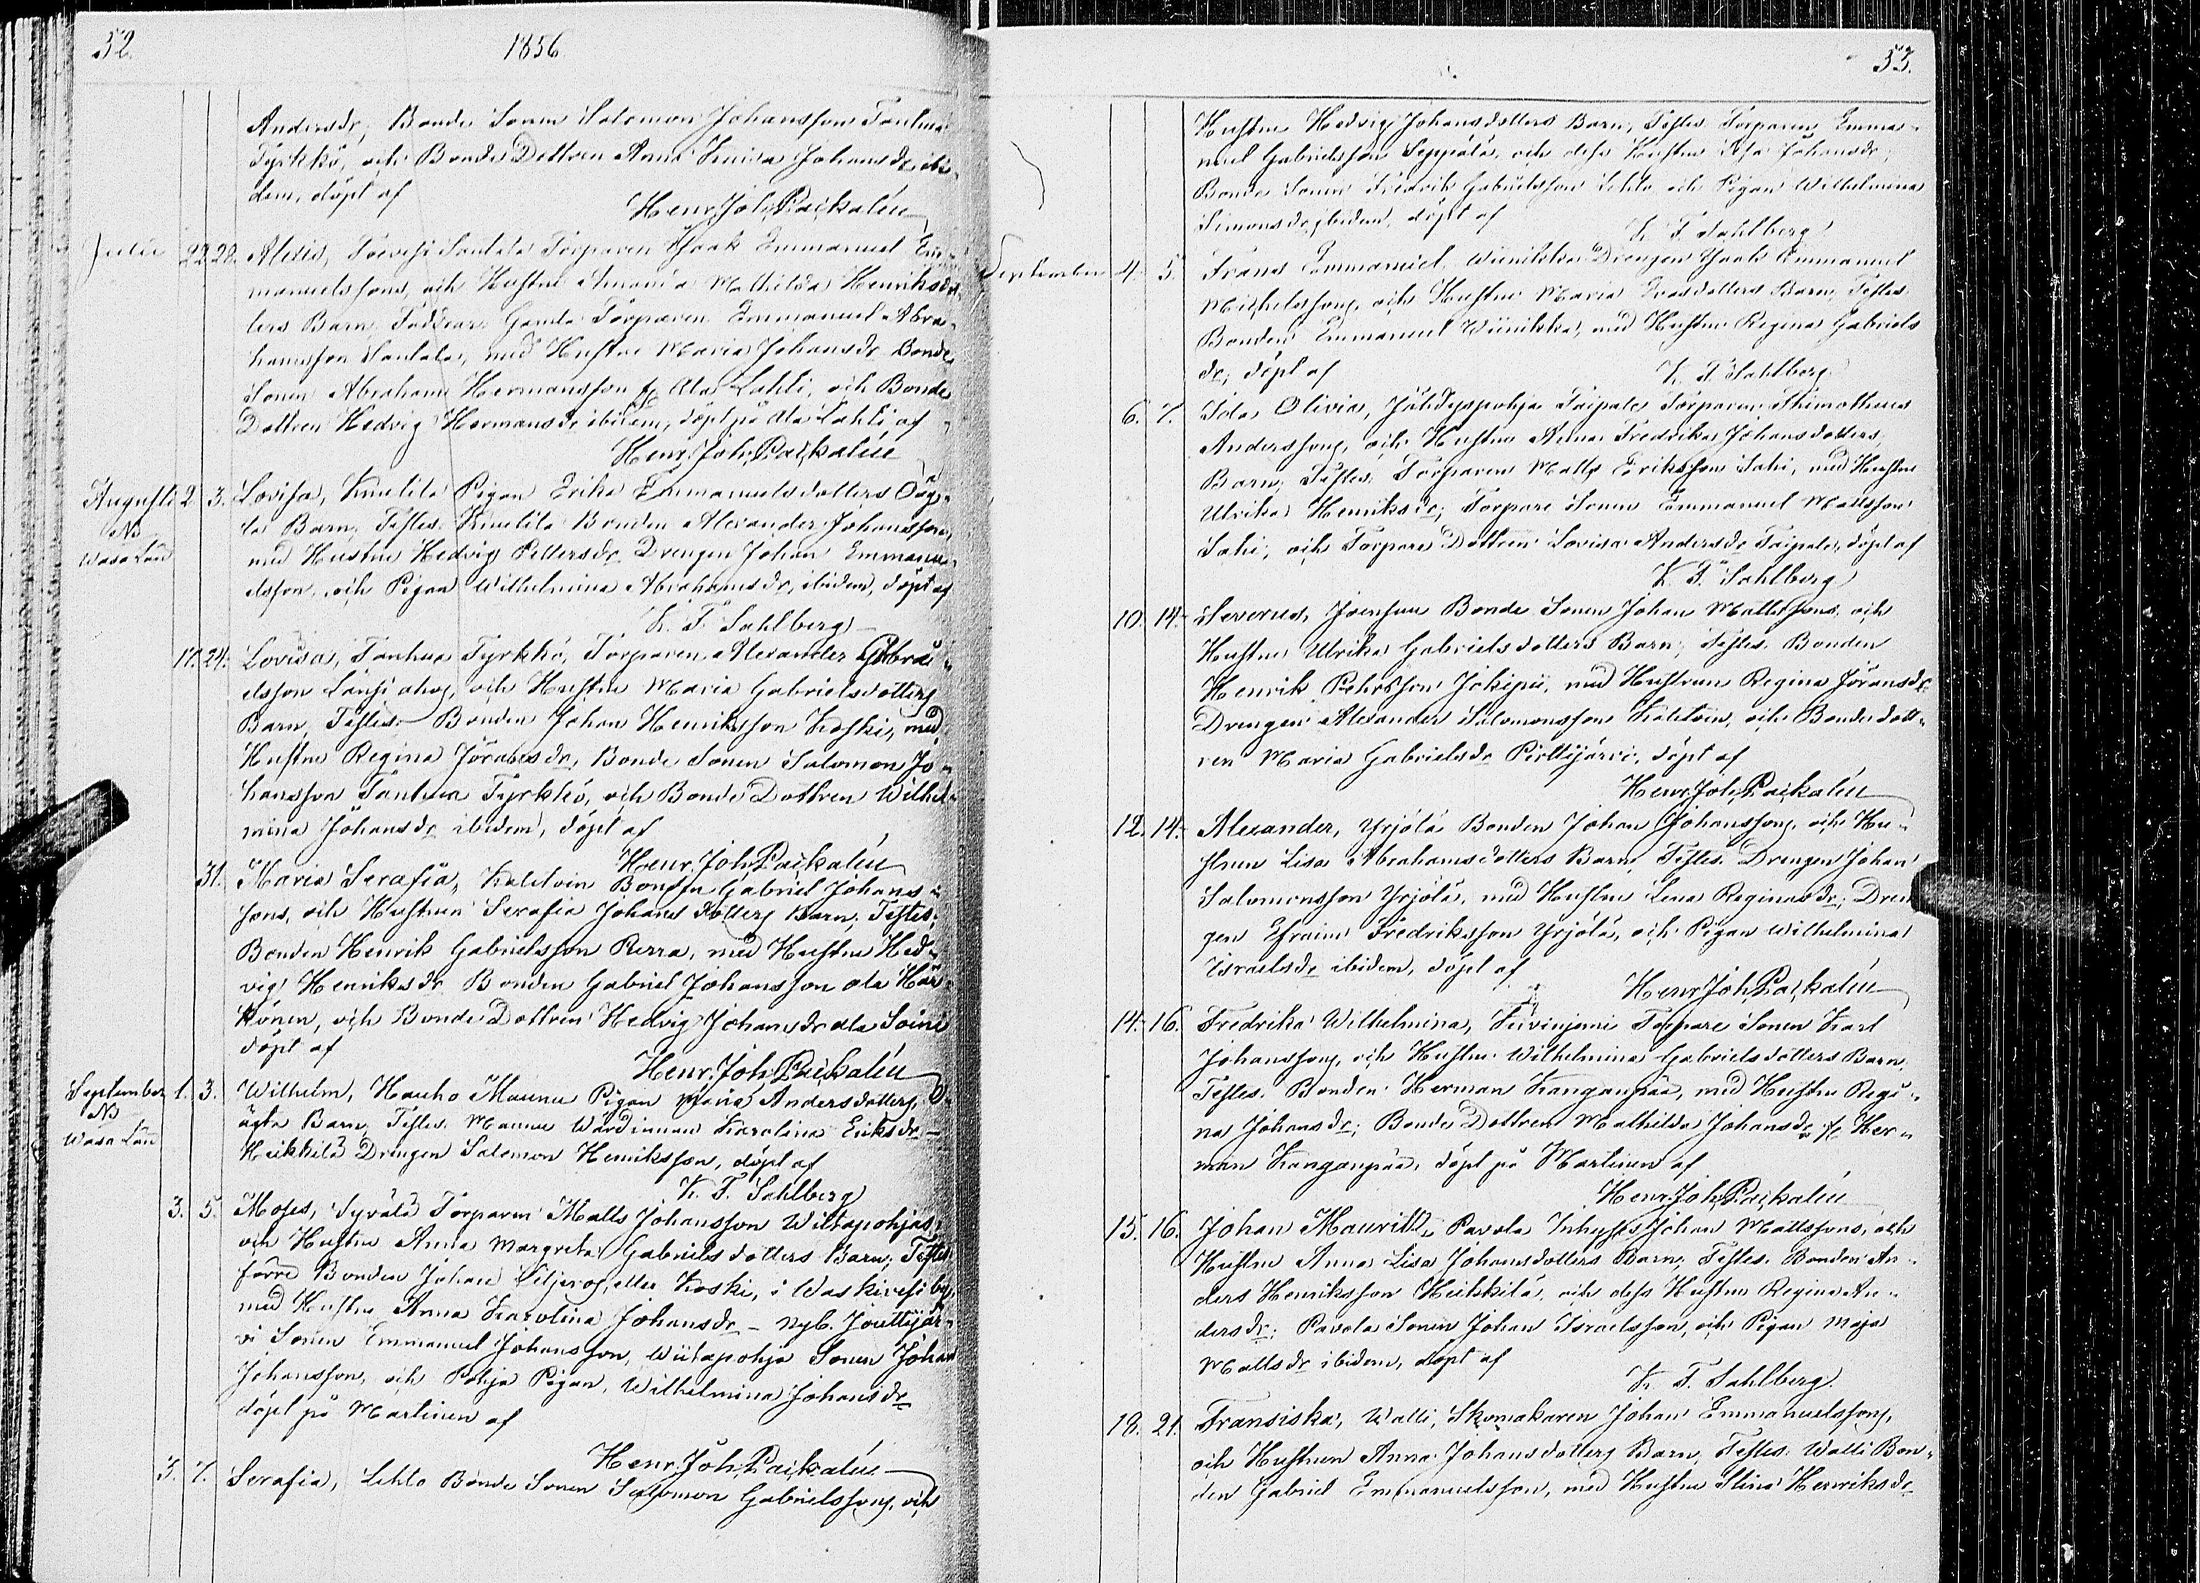 52.
1856.
Andersdr, Bonde Sonen Salomon Johansson Tanhua
Tyrkkö, och Bonde Dottren Anna Lovisa Johansdr ibi-
dem, döpt af
Henr. Joh. Packalén
Julii 22 28. Alexis, Santala Torparen Isaak Emmanuel Em-
manuelssons, och Hustru Amanda Mathilda Henriksdot-
ters Barn. Faddrar: Gamla Torparen Emmanuel Abra-
hamsson Santala, med Hustru Maria Johansdr Bonde
Sonen Abraham Hermansson fr Ala Lahti, och Bonde
Dottren Hedvig Hermansdr ibidem, döpt på Ala Lahti af
Henr. Joh. Packalén
Augusti 2 3. Lovisa, Knulila Pigan Erika Emmanuelsdotters Oäg-
NB ta Barn, Testes: Knulila Bonden Alexander Johansson,
Wasa Län med Hustru Hedvig Pettersdr Drengen Johan Emmanu-
elsson, och Pigan Wilhelmina Abrahamsdr, ibidem, döpt af
K. F. Sahlberg
17. 24. Lovisa, Tanhua Tyrkkö, Torparen Alexander Gabri-
elsson Länsiahos, och Hustru Maria Gabrielsdotters
Barn, Testes: Bonden Johan Henriksson Koski, med
Hustru Regina Göransdr, Bonde Sonen Salomon Jo-
hansson Tanhua Tyrkkö, och Bonde Dottren Wilhel-
mina Johansdr ibidem, döpt af
Henr. Joh. Packalén
31. Maria Serafia, Kaletoin Bonden Gabriel Johans-
sons, och Hustrun Serafia Johansdotters Barn, Testes:
Bonden Henrik Gabrielsson Perra, med Hustru Hed-
vig Henriksdr Bonden Gabriel Johansson ala Här-
könen, och Bonde Dottren Hedvig Johansdr ala Soini
döpt af
Henr. Joh. Packalén
September 1. 3. Wilhelm, Hauho Maunu Pigan Maria Andersdotters, O-
NB ägta Barn, Testes: Maunu Wärdinnan Karolina Eriksdr
Wasa Län Heikkilä Drengen Salomon Henriksson, döpt af
K. F. Sahlberg
3. 5. Moses, Syvälä Torparen Matts Johansson Wiitapohjas,
och Hustru Anna Margreta Gabrielsdotters Barn; Testes
förre Bonden Johan Siljeros, eller Koski, i Waskivesi by,
med Hustru Anna Karolina Johansdr - Nyb. Jouttijär-
vi Sonen Emmanuel Johansson, Wiitapohja Sonen Johan
Johansson, och Pohja Pigan, Wilhelmina Johansdr
döpt på Martinen af
Henr. Joh. Packalén
3. 7. Serafia, Lehto Bonde Sonen Salomon Gabrielssons, och
53.
Hustru Hedvig Johansdotters Barn, Testes: Torparen Emma-
nuel Gabrielsson Seppälä, och dess Hustru Johansdr,
Bonde Sonen Fredrik Gabrielsson Lehto och Pigan Wilhelmina
Simonsdr, ibidem, döpt af
K. F. Sahlberg
September 4. 5. Frans Emmanuel, Wiinikka Drengen Isaak Emmanuel
Michelssons, och Hustru Maria Evasdotters Barn, Testes:
Bonden Emmanuel Wiinikka, med Hustru Regina Gabriels
dr, döpt af
K. F. Sahlberg.
6. 7. Ida Olivia, Jähdyspohja Taipale Torparen Thimotheus
Anderssons, och Hustru Anna Fredrika Johansdotters,
Barn, Testes: Torparen Matts Eriksson Sahi, med Hustru
Ulrika Henriksdr, Torpare Sonen Emmanuel Mattsson
Sahi, och Torpare Dottren Lovisa Andersdr Taipale, döpt af
K. F. Sahlberg
10. 14. Severus, Joensuu Bonde Sonen Johan Mattssons, och
Hustru Ulrika Gabrielsdotters Barn, Testes: Bonden
Henrik Pehrsson Jokipii, med Hustrun Regina Göransdr
Drengen Alexander Salomonsson Kaletoin, och Bonde dott-
ren Maria Gabrielsdr Pirttijärvi, döpt af
Henr. Joh. Packalén
12. 14. Alexander, Yrjölä Bonden Johan Johanssons, och Hu-
strun Lisa Abrahamsdotters Barn, Testes: Drengen Johan
Salomonsson Yrjölä, med Hustru Lena Reginasdr; Dren
gen Efraim Fredriksson Yrjölä, och Pigan Wilhelmina
Israelsdr ibidem, döpt af
Henr. Joh. Packalén
14. 16. Fredrika Wilhelmina, Torpare Sonen Karl
Johanssons, och Hustru Wilhelmina Gabrielsdotters Barn,
Testes: Bonden Herman Kanganpää, med Hustru Regi-
na Johansdr; Bonde Dottren Mathilda Johansdr fr Her-
man Kanganpää, döpt på Martinen af
Henr. Joh. Packalén
15. 16. Johan Mauritz, Pavola Inhyses Johan Mattssons, och
Hustru Anna Lisa Johansdotters Barn, Testes: Bonden An-
ders Henriksson Heikkilä, och dess Hustru Regina An-
dersdr; Pavola Sonen Johan Israelsson, och Pigan Maja
Mattsdr ibidem, döpt af
K. F. Sahlberg.
18. 21. Fransiska, Walli, Skomakaren Johan Emmanuelssons,
och Hustrun Anna Johansdotters Barn, Testes: Walli Bon-
den Gabriel Emmanuelsson, med Hustru Stina Henriksdr